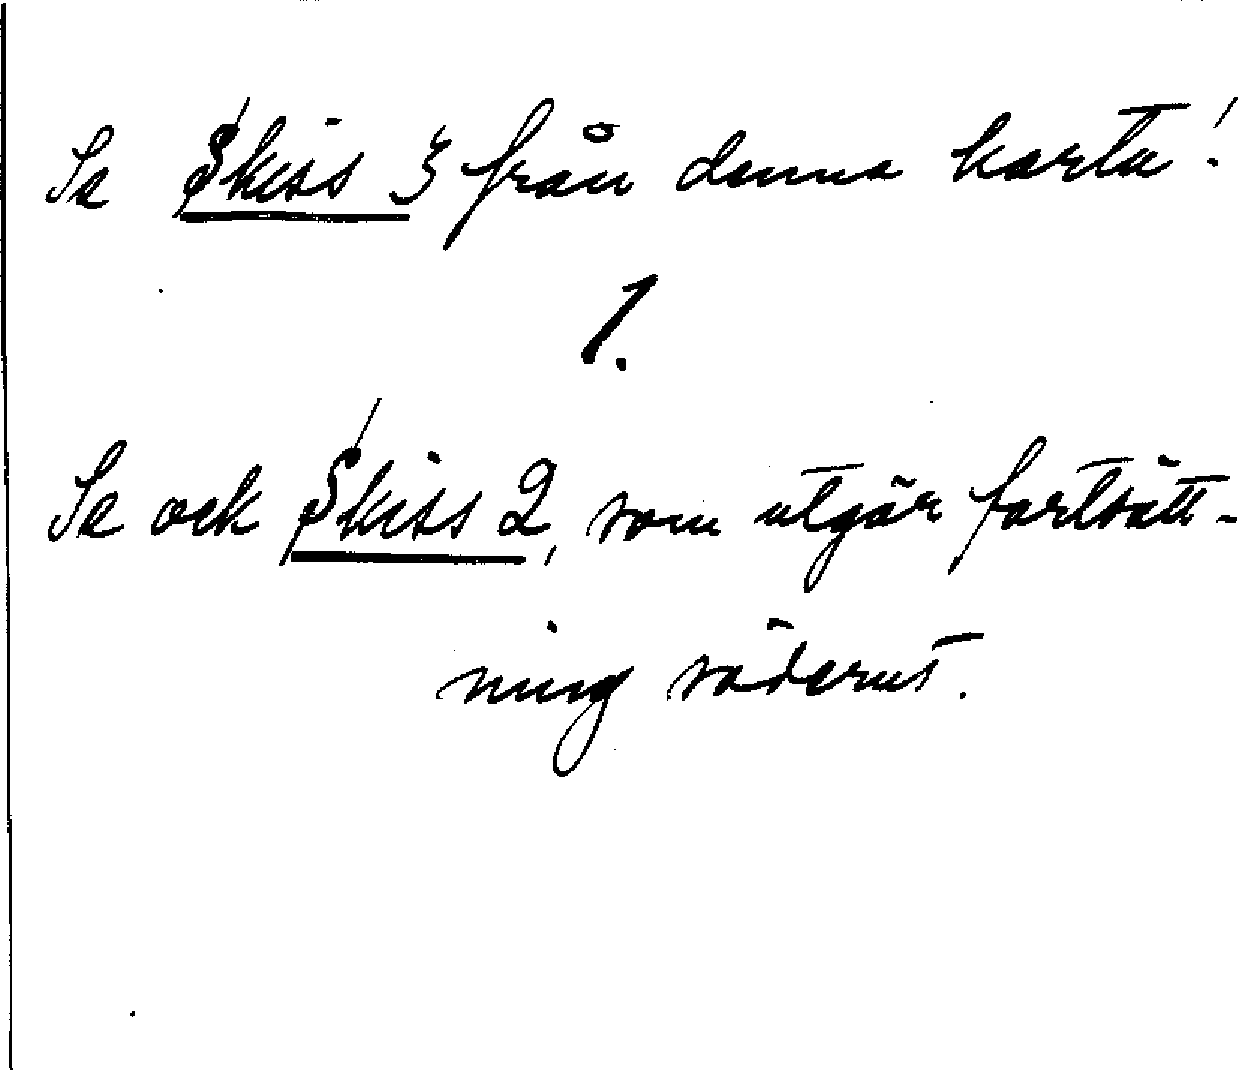 Se Skiss 3 från denna karta!
1.
Se ock Skiss 2, som utgör fortsätt-
ning söderut.